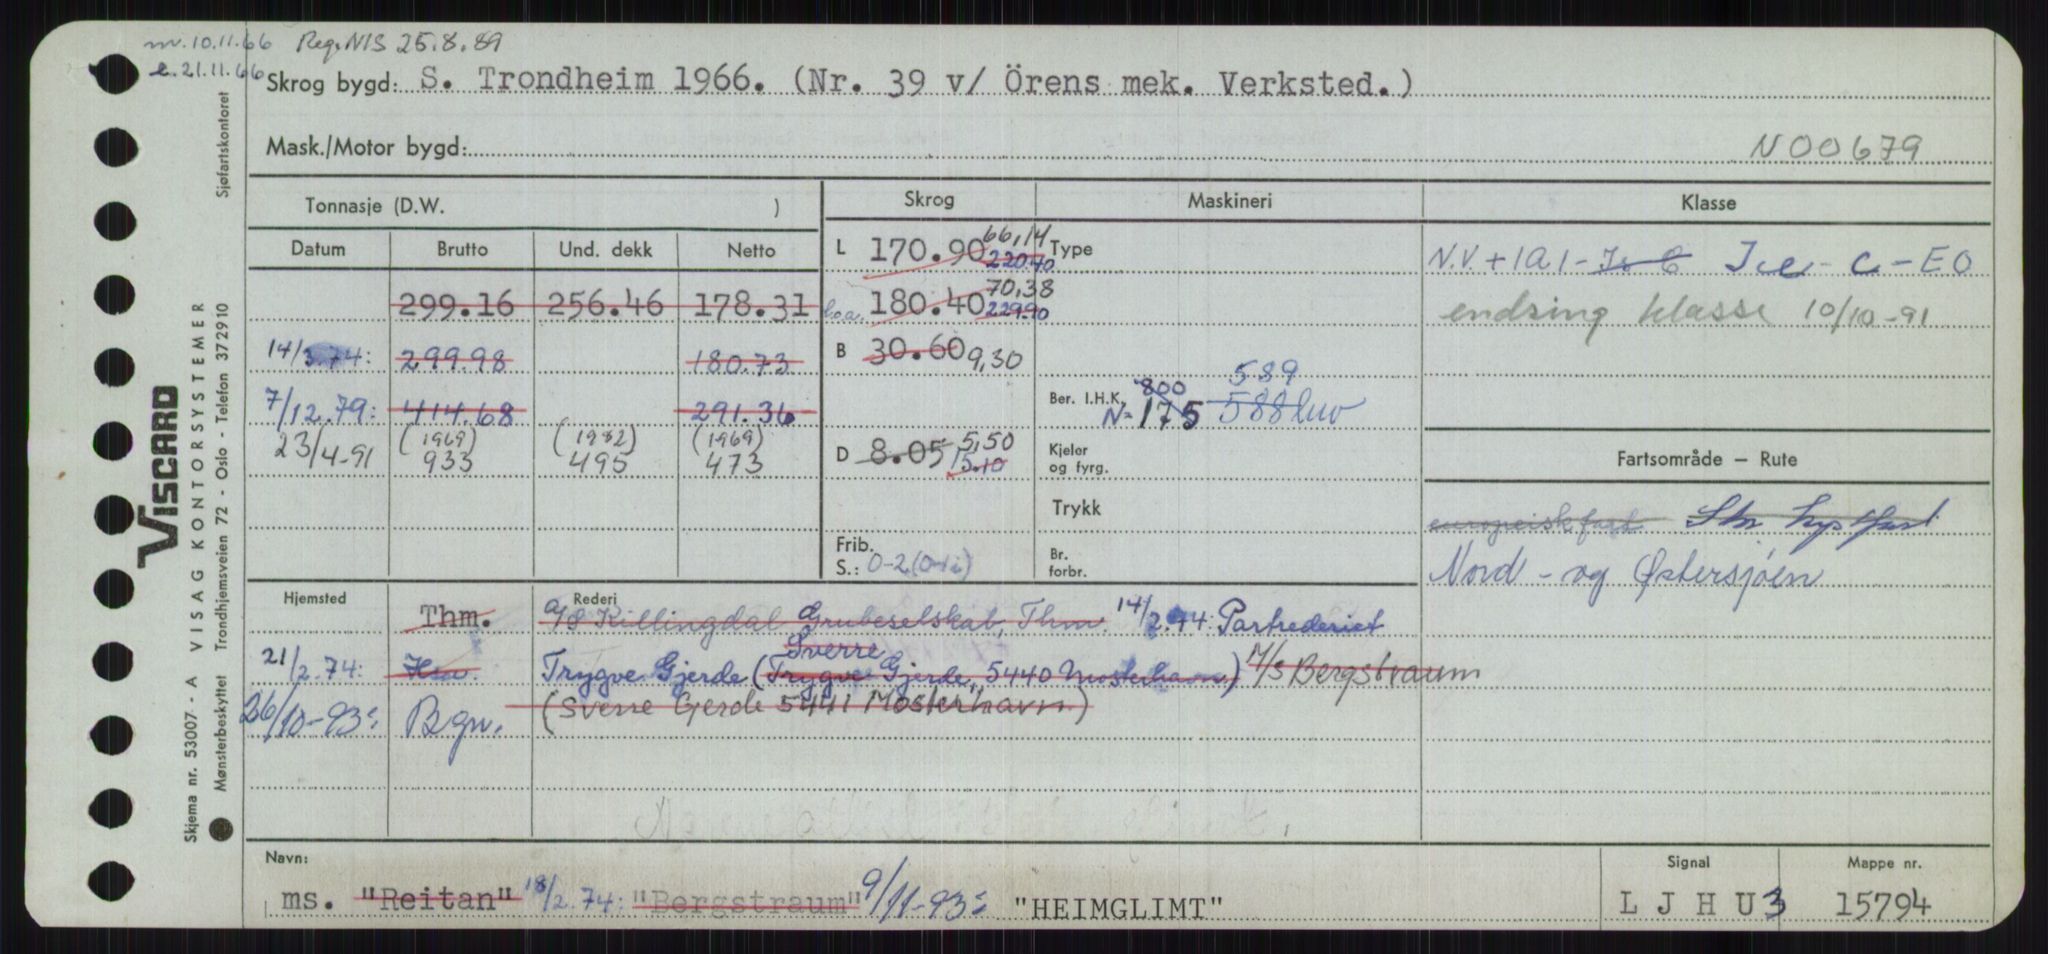 nv. 10.11.66 Reg. NIS 25.8.89
e. 21.11.66
Skrog bygd: S. Trondheim 1966. (Nr. 39 v/ Örens mek. Verksted.)
Mask./Motor bygd: N00679
Tonnasje (D.W. ) Skrog Maskineri Klasse
Datum Brutto Und. dekk Netto
L 170.90 220.70 66,14 Type
N.V + 1A1 - Is C Ice - C - EO
299.16 256.46 178.31
l.o.a. 180.40 229.90 70,38
endring klasse 10/10-91
14/3.74: 299.98 180.73
B 30.60 9,30
7/12.79: 414.68 291.36
Ber. I.H.K. 800 N=175 588 589
23/4-91 (1969) 933 (1982) 495 (1969) 473
D 8.05 15.10 5,50
Kjeler og fyrg.
Fartsområde – Rute
Trykk
europeisk fart
Frib. S.: 0-2
Br. forbr.
Nord - og Østersjøen
Hjemsted Rederi
Thm. A/S Killingdal Grubeselskab, Thm. 14/2.74: Partrederiet
21/2.74: Trygve Gjerde (Trygve Sverre Gjerde, 5440 Mosterhavn) M/S Bergstraum
26/10-93: Bgn. (Sverre Gerde 5441 Mosterhavn)
Navn: Signal Mappe nr.
ms. "Reitan" 18/2.74: "Bergstraum" 9/11-93: "HEIMGLIMT" L J H U 3 15794
VISCARD
Skjema nr. 53007 - A VISAG KONTORSYSTEMER
Mønsterbeskyttet Trondhjemsveien 72 - Oslo - Telefon 372910 Sjøfartskontoret